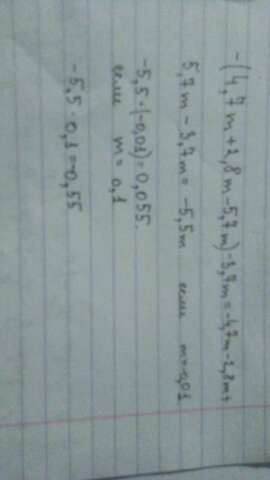 -(4,7m+2,8m-5,7m)-3,7m=-4,7m-2,8m+
5,7m-3,7m=-5,5m если m=-0,01
-5,5·(-0,01)=0,055.
если m=0,1
-5,5·0,1=-0,55